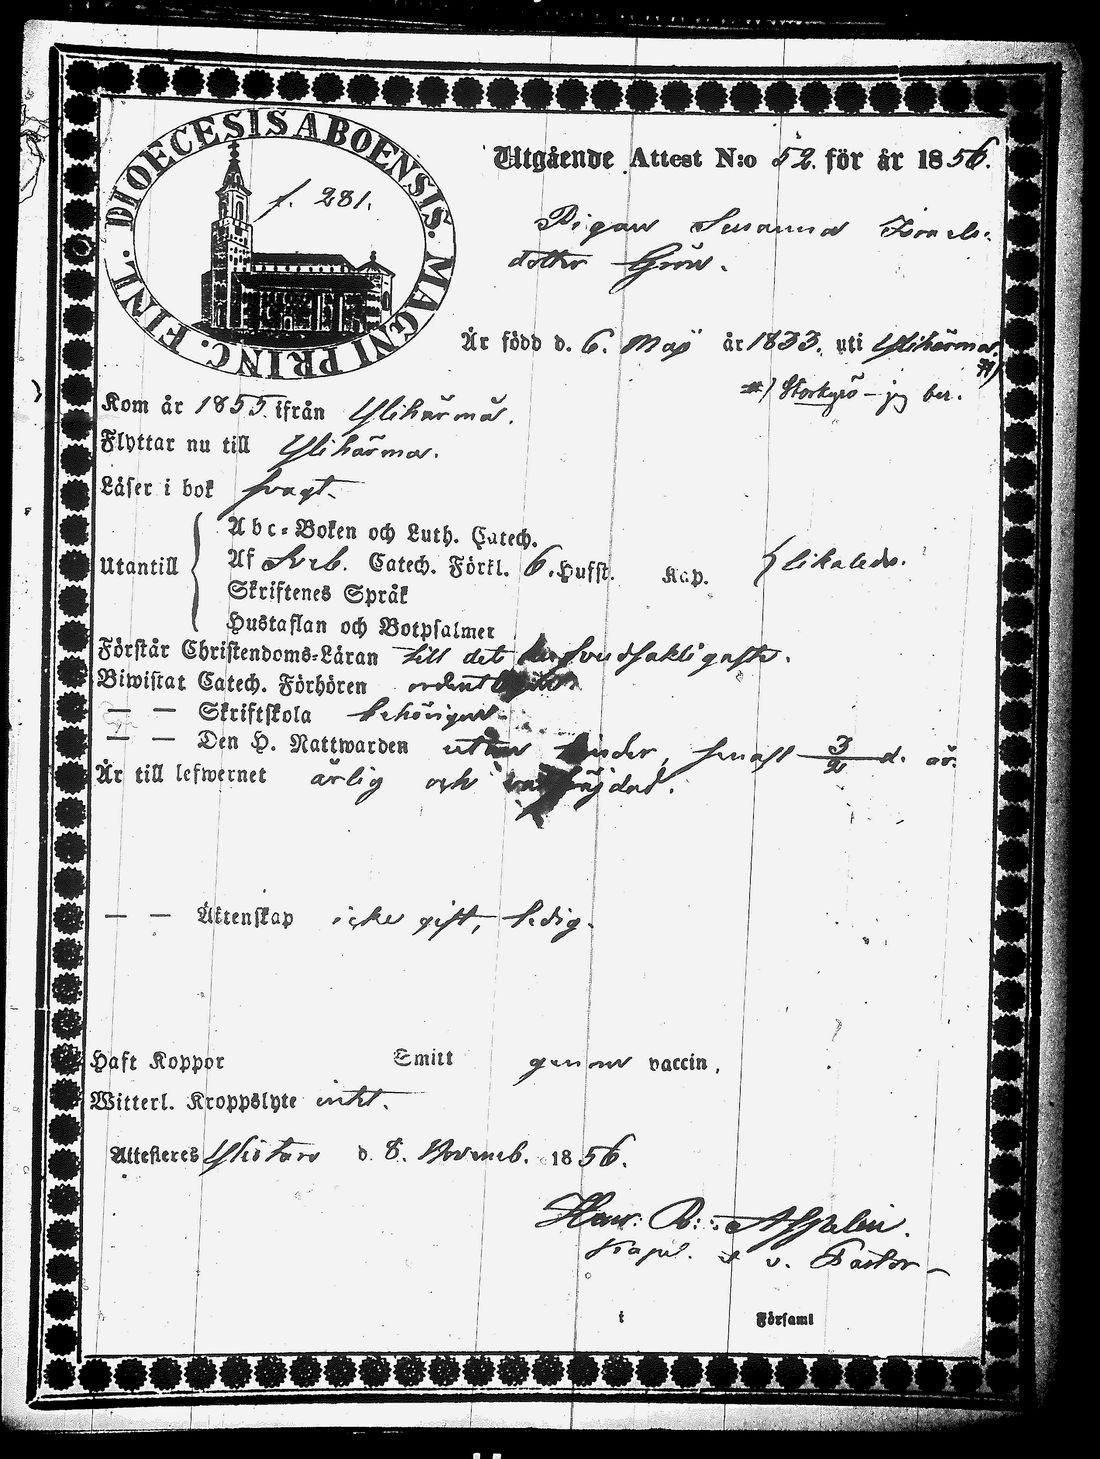 DIOECESIS ABOENSIS. MAGNI PRINC. FINL.
f. 281.
Utgående Attest N:o 52. för år 1856.
Pigan Susanna Israels-
dotter Grön.
Är född d. 6. Maj år 1833. uti Ylihärmä.
#) Storkyrö – jeg ber.
Kom år 1855. ifrån Ylihärmä.
Flyttar nu till Ylihärmä.
Läser i bok svagt.
Utantill
Abc-Boken och Luth. Catech.
Af Sveb. Catech. Förkl. 6. Hufst. Kap. likaledes.
Skriftenes Språk
Hustaflan och Botpsalmer
Förstår Christendoms-Läran till det hufvudsakligaste.
Biwistat Catech. Förhören ordentligen.
— — Skriftskola behörigen.
— — Den H. Nattwarden utan hinder, senast 3/2 d. år.
Är till lefwernet ärlig och välfräjdad.
— — Äktenskap icke gift, ledig.
Haft Koppor Smitt genom vaccin,
Witterl. Kroppslyte intet.
Attesteres Ylistaro d. 8. Novemb. 1856.
Kapel. v. Pastor
i Församl